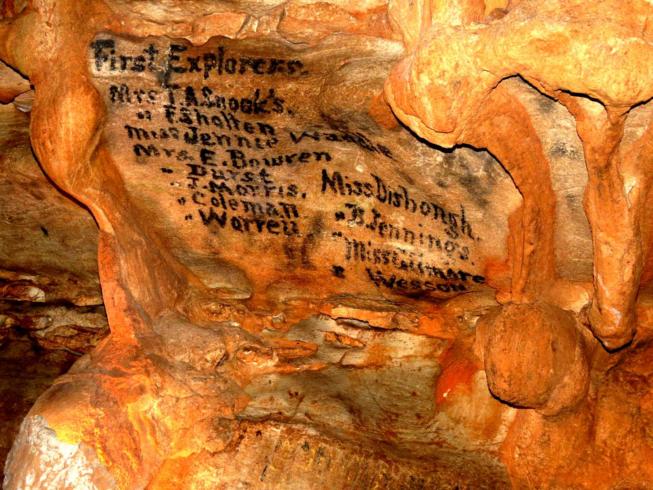 First Explorers.
Mrs T.A.Snook's.
" F.Sholten
Miss Jennie
Mrs E.Bowren
" Durst
" J.Morris.
" Coleman
" Warren
Miss Dishongh.
" B.Jennings.
" Miss Gilmore
" Wesson